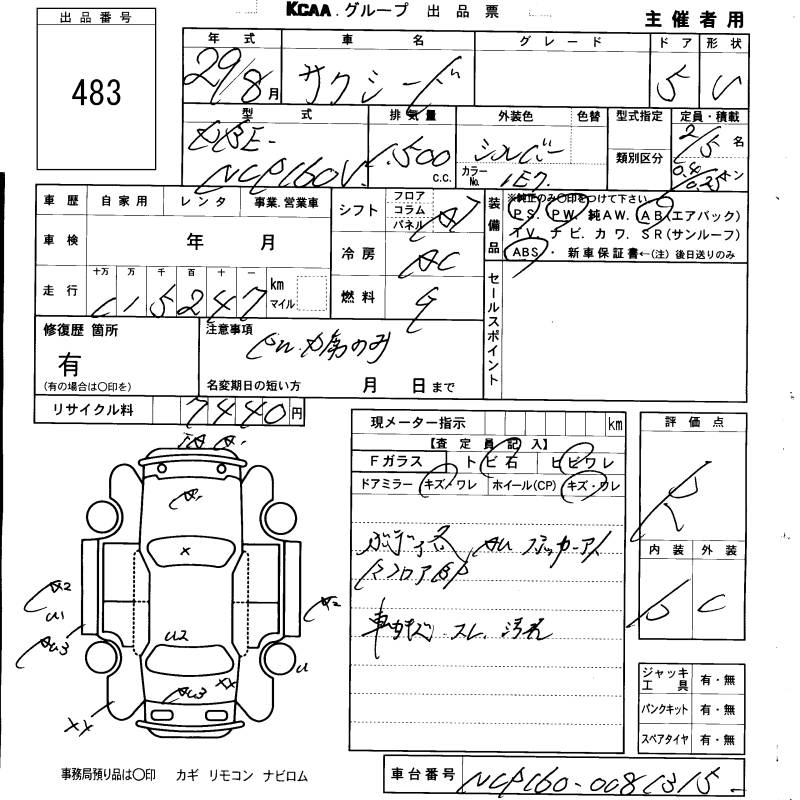 KCAA グループ 出品票
主催者用
出品番号
483
年式 車名 グレード ドア 形状
29/8月 サクシード 5 V
型式 排気量 外装色 色替 型式指定 定員・積載
DBE- 1,500 シルバー 2/5名
NCP160V c.c. カラーNo. 1E7 類別区分 トン
車歴 自家用 レンタ 事業.営業車
シフト フロア コラム パネル AT
装備品 ※純正のみ〇印をつけて下さい
P.S. P.W. 純A.W. A.B(エアバック)
T.V. ナビ. カワ. S R(サンルーフ)
ABS・新車保証書←(注)後日送りのみ
車検 年 月
冷房 AC
走行 十万 万 千 百 十 一 km マイル
115247
燃料 G
セールスポイント
修復歴 箇所
有
(有の場合は〇印を)
注意事項
名変期日の短い方 月 日まで
リサイクル料 7440円
現メーター指示 km
【査定員記入】
Fガラス トビ石 ヒビワレ
ドアミラー キズ・ワレ ホイール(CP) キズ・ワレ
評価点
R
内装 外装
D C
A1
×
A2
U1
AU3
A2
U2
U
AU3
XX
XX
車内キズ スレ 汚れ
ジャッキ工具 有・無
パンクキット 有・無
スペアタイヤ 有・無
事務局預り品は〇印 カギ リモコン ナビロム
車台番号 NCP160-0081315-